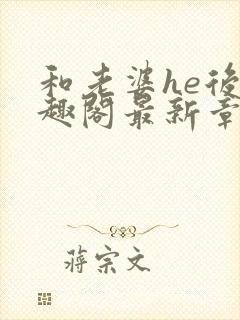 和老婆he後
趣閣最新章
蔣宗文